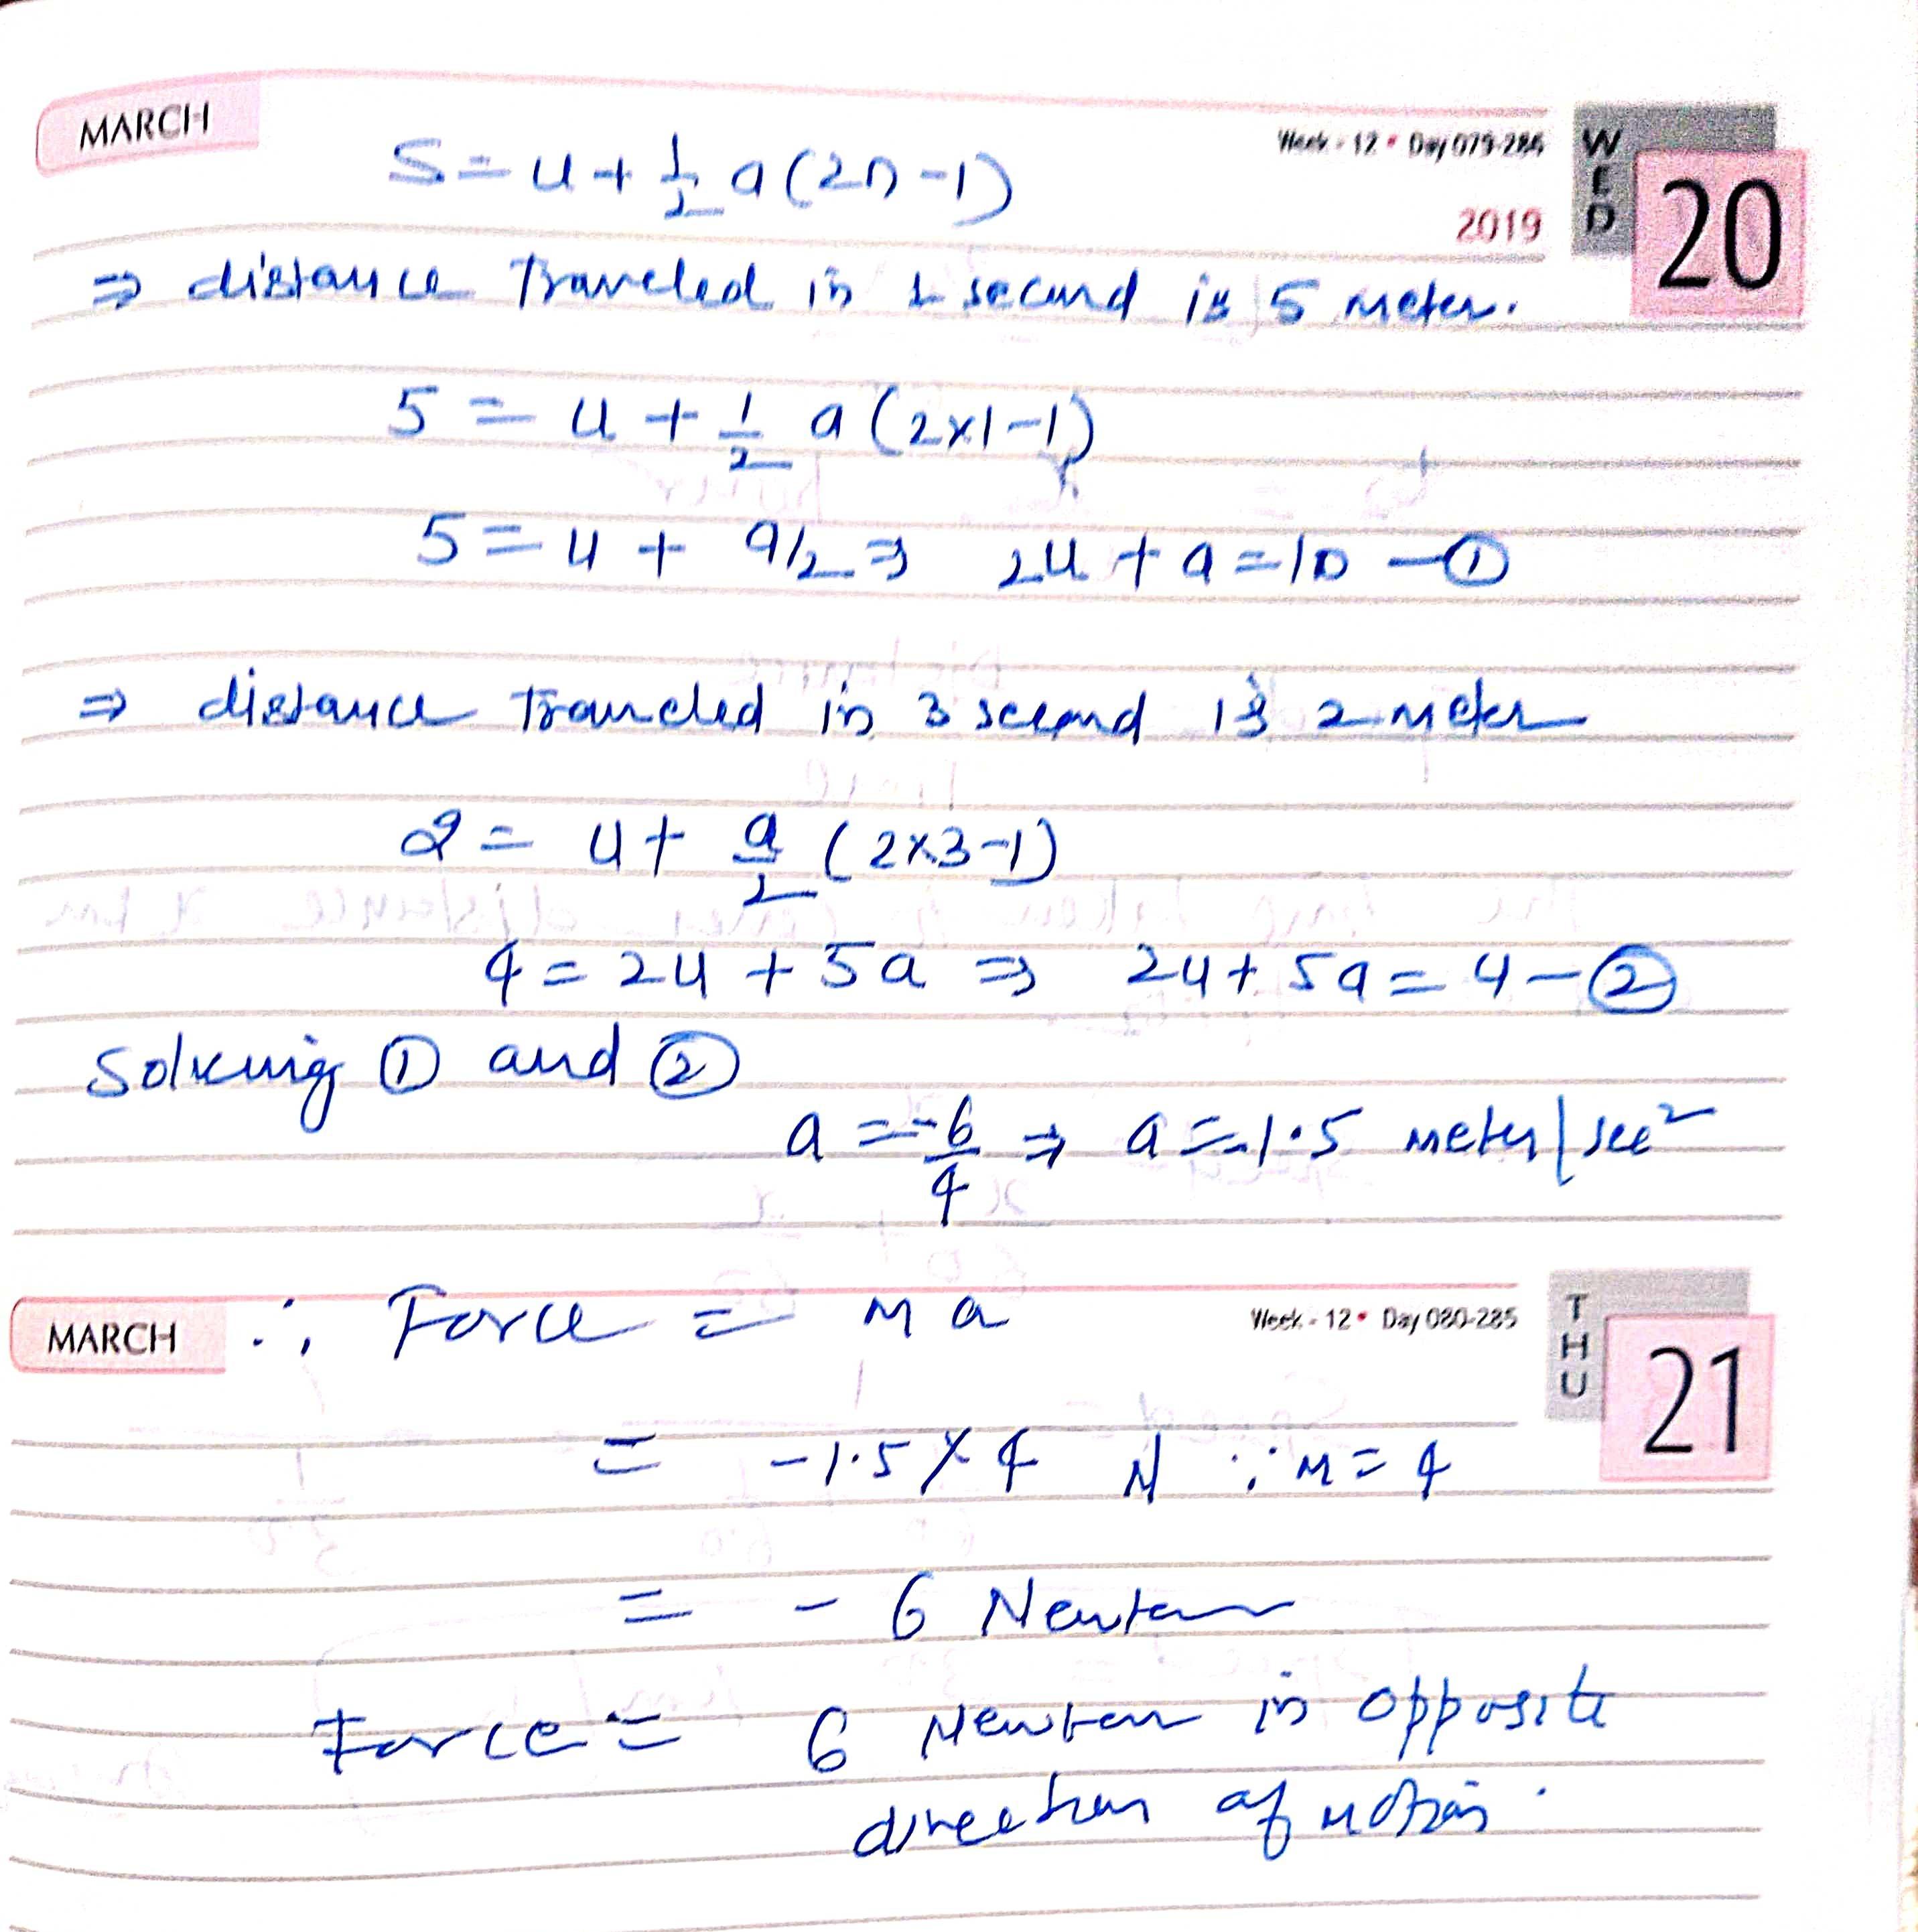 MARCH
Week - 12 • Day 079-286
WED
20
2019
S = u + 1/2 a (2n - 1)
⇒ distance Traveled in 1 second is 5 meter.
5 = u + 1/2 a (2x1-1)
5 = u + a/2 ⇒ 2u + a = 10 - ①
⇒ distance Traveled in 3 second is 2 meter
2 = u + a/2 (2x3-1)
4 = 2u + 5a ⇒ 2u + 5a = 4 - ②
Solving ① and ②
a = -6/4 ⇒ a = -1.5 meter/sec²
MARCH
Week - 12 • Day 080-285
THU
21
∴ Force = ma
= -1.5 x 4 N ∵ M = 4
= - 6 Newton
Force = 6 Newton in opposite
direction of motion.